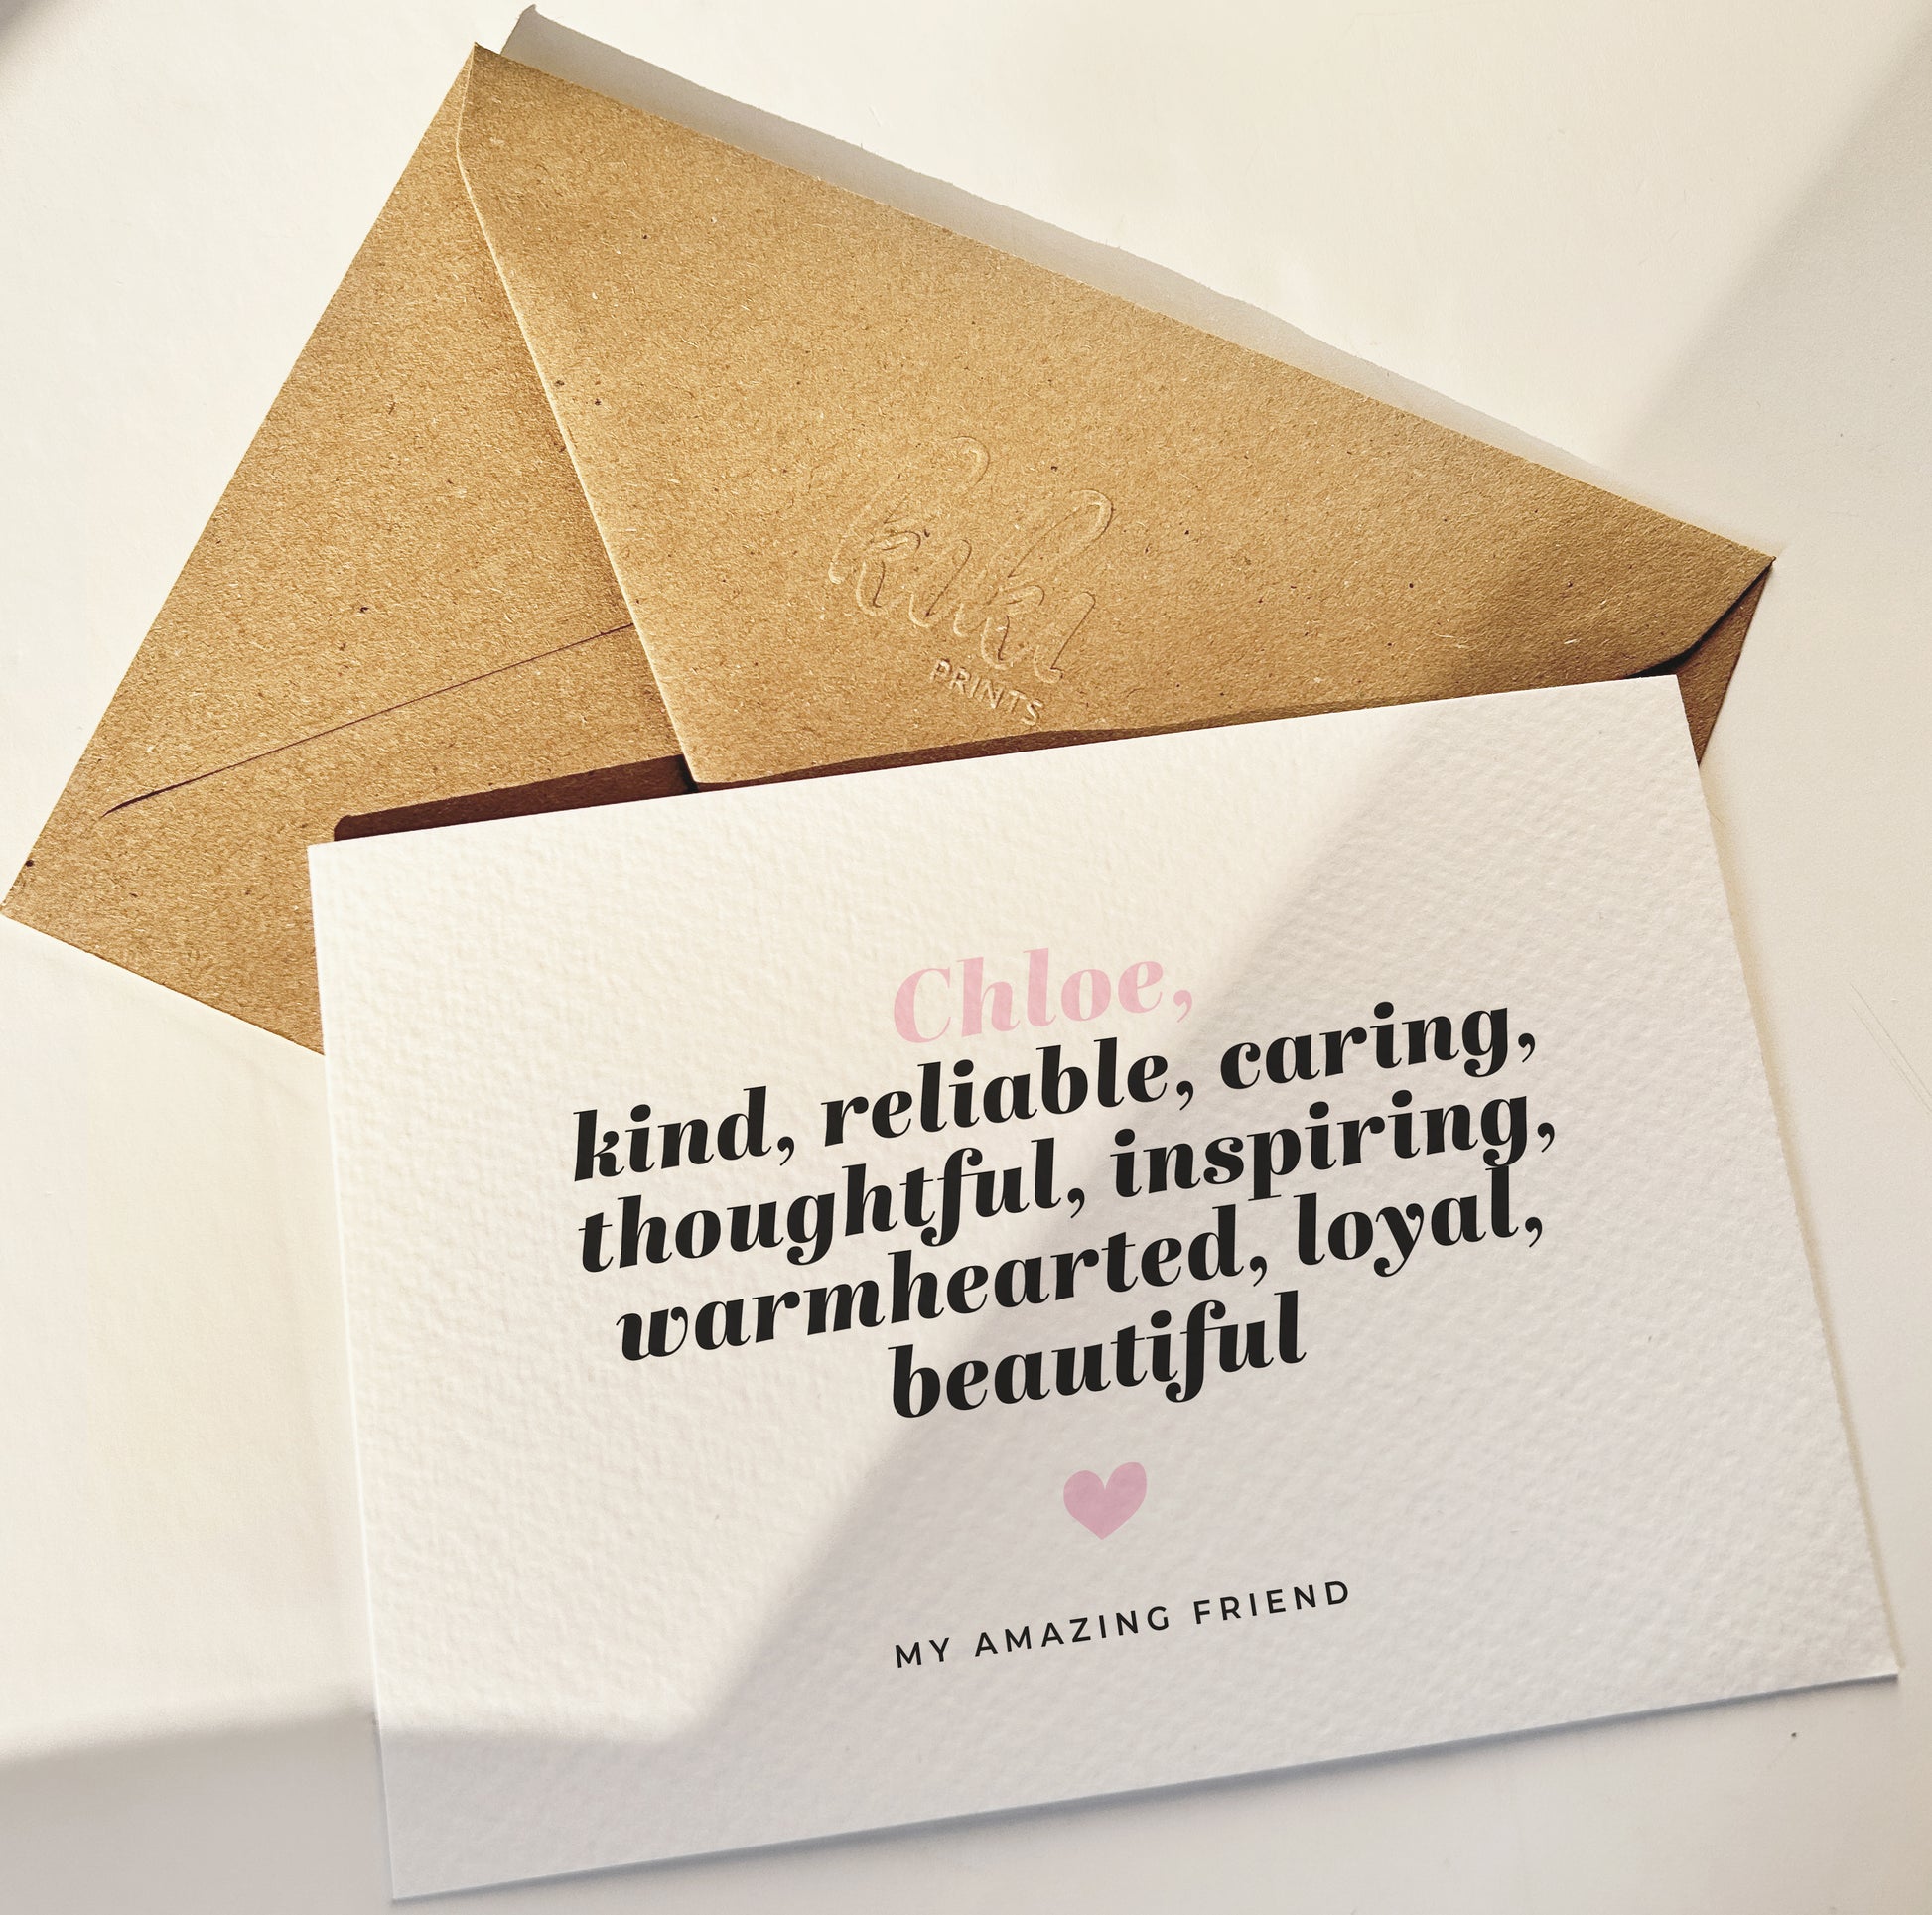 kiki
PRINTS
Chloe,
kind, reliable, caring,
thoughtful, inspiring,
warmhearted, loyal,
beautiful
MY AMAZING FRIEND